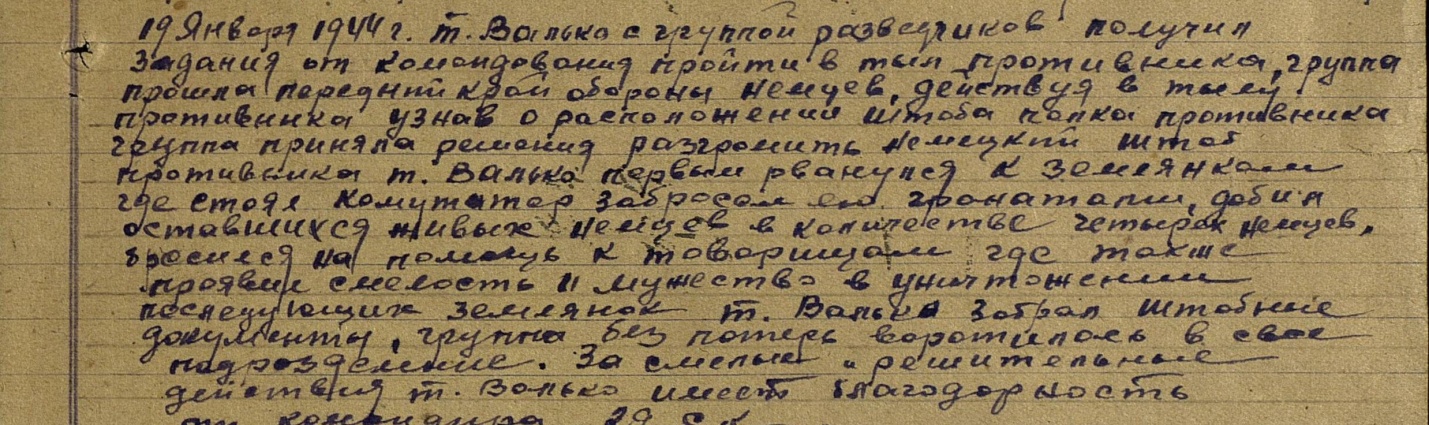 19 Января 1944 г. т. Валько с группой разведчиков получил
Задания от командования пройти в тыл противника, группа
прошла передний край обороны немцев, действуя в тылу
противника узнав о расположении штаба полка противника
группа приняла решения разгромить немецкий штаб
противника т. Валько первым рванулся к землянкам
где стоял комутатор забросал его гранатами, добил
оставшихся живых немцев в количестве четырех немцев,
бросился на помощь к товарищам где также
проявил смелость и мужество в уничтожении
последующих землянок т. Валько забрал штабные
документы, группа без потерь воротилась в свое
подразделение. За смелые и решительные
действия т. Валько имеет благодарность
от командира 29 С.К.